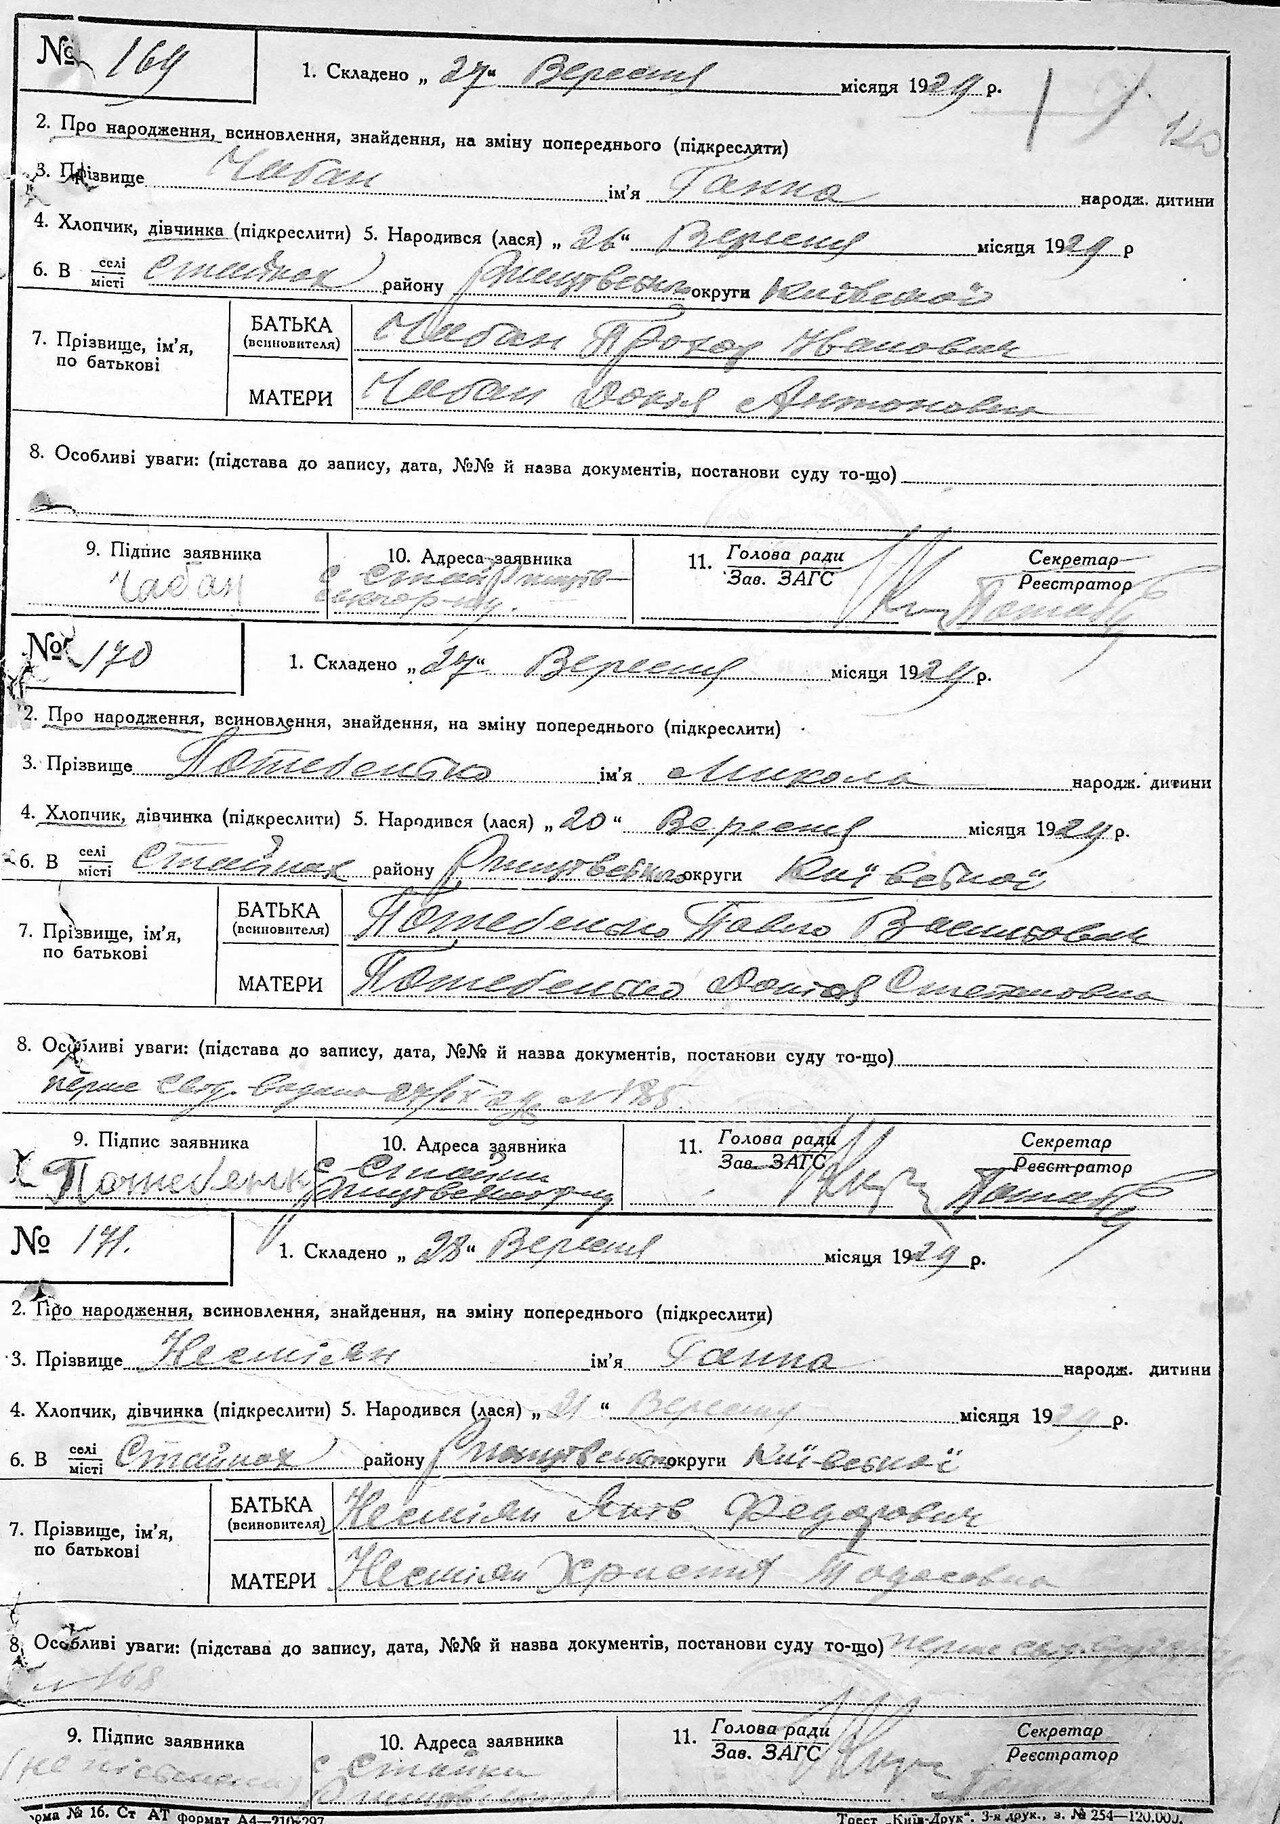 № 169
1. Складено „ 27 “ Вересня місяця 1929 р.
120
2. Про народження, всиновлення, знайдення, на зміну попереднього (підкреслити)
3. Прізвище Чабан ім'я Ганна народж. дитини
4. Хлопчик, дівчинка (підкреслити) 5. Народився (лася) „ 26 “ Вересня місяця 1929 р
6. В селі/місті Стайках району Ржищевського округи Київської
7. Прізвище, ім'я, по батькові
БАТЬКА (всиновителя) Чабан Прохор Иванович
МАТЕРИ Чабан Докія Антоновна
8. Особливі уваги: (підстава до запису, дата, №№ й назва документів, постанови суду то-що)
9. Підпис заявника
Чабан
10. Адреса заявника
с Стайки
11. Голова ради
Зав. ЗАГС
Секретар
Реєстратор
№ 170
1. Складено „ 27 “ Вересня місяця 1929 р.
2. Про народження, всиновлення, знайдення, на зміну попереднього (підкреслити)
3. Прізвище Потебенько ім'я Микола народж. дитини
4. Хлопчик, дівчинка (підкреслити) 5. Народився (лася) „ 20 “ Вересня місяця 1929 р.
6. В селі/місті Стайках району Ржищевського округи Київської
7. Прізвище, ім'я, по батькові
БАТЬКА (всиновителя) Потебенько Павло Васильович
МАТЕРИ Потебенько Докія Степановна
8. Особливі уваги: (підстава до запису, дата, №№ й назва документів, постанови суду то-що)
перше свід. видано 27/IX 29 № 185.
9. Підпис заявника
Потебеньк
10. Адреса заявника
с Стайки
11. Голова ради
Зав. ЗАГС
Секретар
Реєстратор
№ 171.
1. Складено „ 28 “ Вересня місяця 1929 р.
2. Про народження, всиновлення, знайдення, на зміну попереднього (підкреслити)
3. Прізвище Несміян ім'я Ганна народж. дитини
4. Хлопчик, дівчинка (підкреслити) 5. Народився (лася) „ 21 “ Вересня місяця 1929 р.
6. В селі/місті Стайках району Ржищевського округи Київської
7. Прізвище, ім'я, по батькові
БАТЬКА (всиновителя) Несміян Яків Федорович
МАТЕРИ Несміян Христя Тодосовна
8. Особливі уваги: (підстава до запису, дата, №№ й назва документів, постанови суду то-що) перше свід.
№ 168
9. Підпис заявника
10. Адреса заявника
с Стайки
11. Голова ради
Зав. ЗАГС
Секретар
Реєстратор
орма № 16. Ст АТ формат А4—210×297
Трест „Київ-Друк“. 3-я друк., з. № 254—120.000.